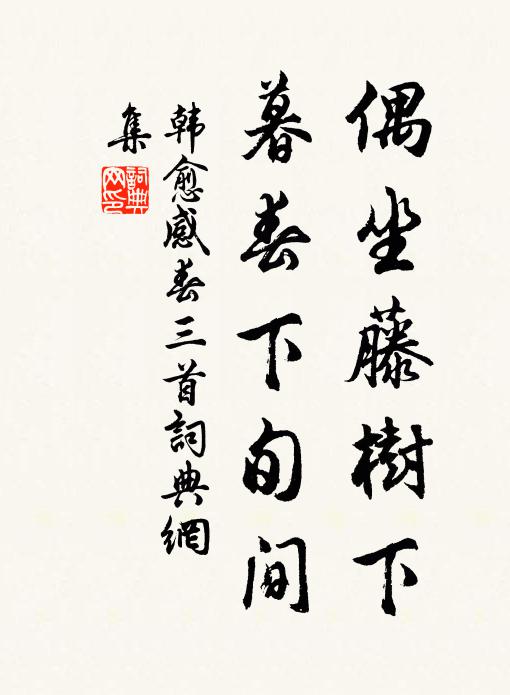 偶坐藤樹下
暮春下旬间
韩愈感春三首詞典網
集
詞典
网印